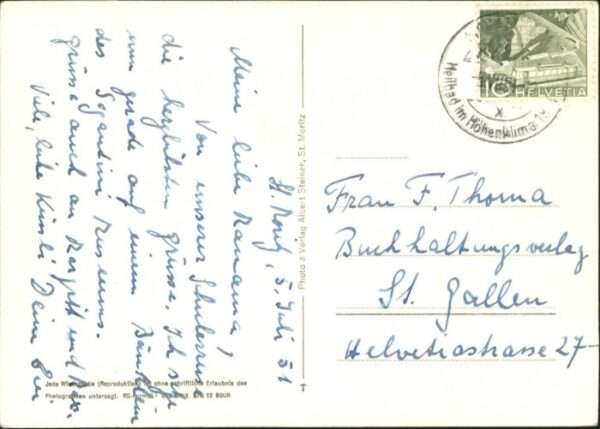 St. Moriz, 5. Juli 51
Meine liebe Mamama!
Von unserer Schulreise
die herzlichsten Grüsse. Ich sitze
nun gerade auf einem Bänklein
des Segantini Museums.
Grüsse auch an Margritt und
Viele, liebe Küssli Deine
Photo & Verlag Albert Steiner, St. Moritz
Heilbad im Höhenklima
10 HELVETIA
Frau F. Thoma
Buchhaltungsverlag
St. Gallen
Helvetiastrasse 27
Jede Wiedergabe (Reproduktion) ist ohne schriftliche Erlaubnis des
Photographen untersagt.